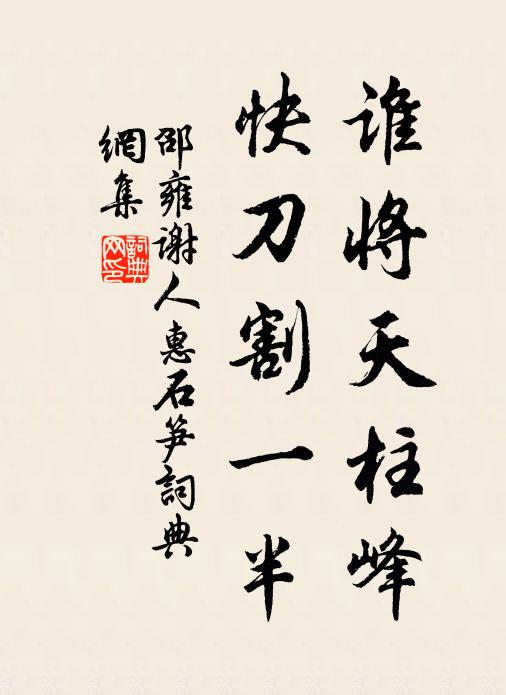 谁将天柱峰
快刀割一半
邵雍谢人惠石笋詞典
網集
詞典网印